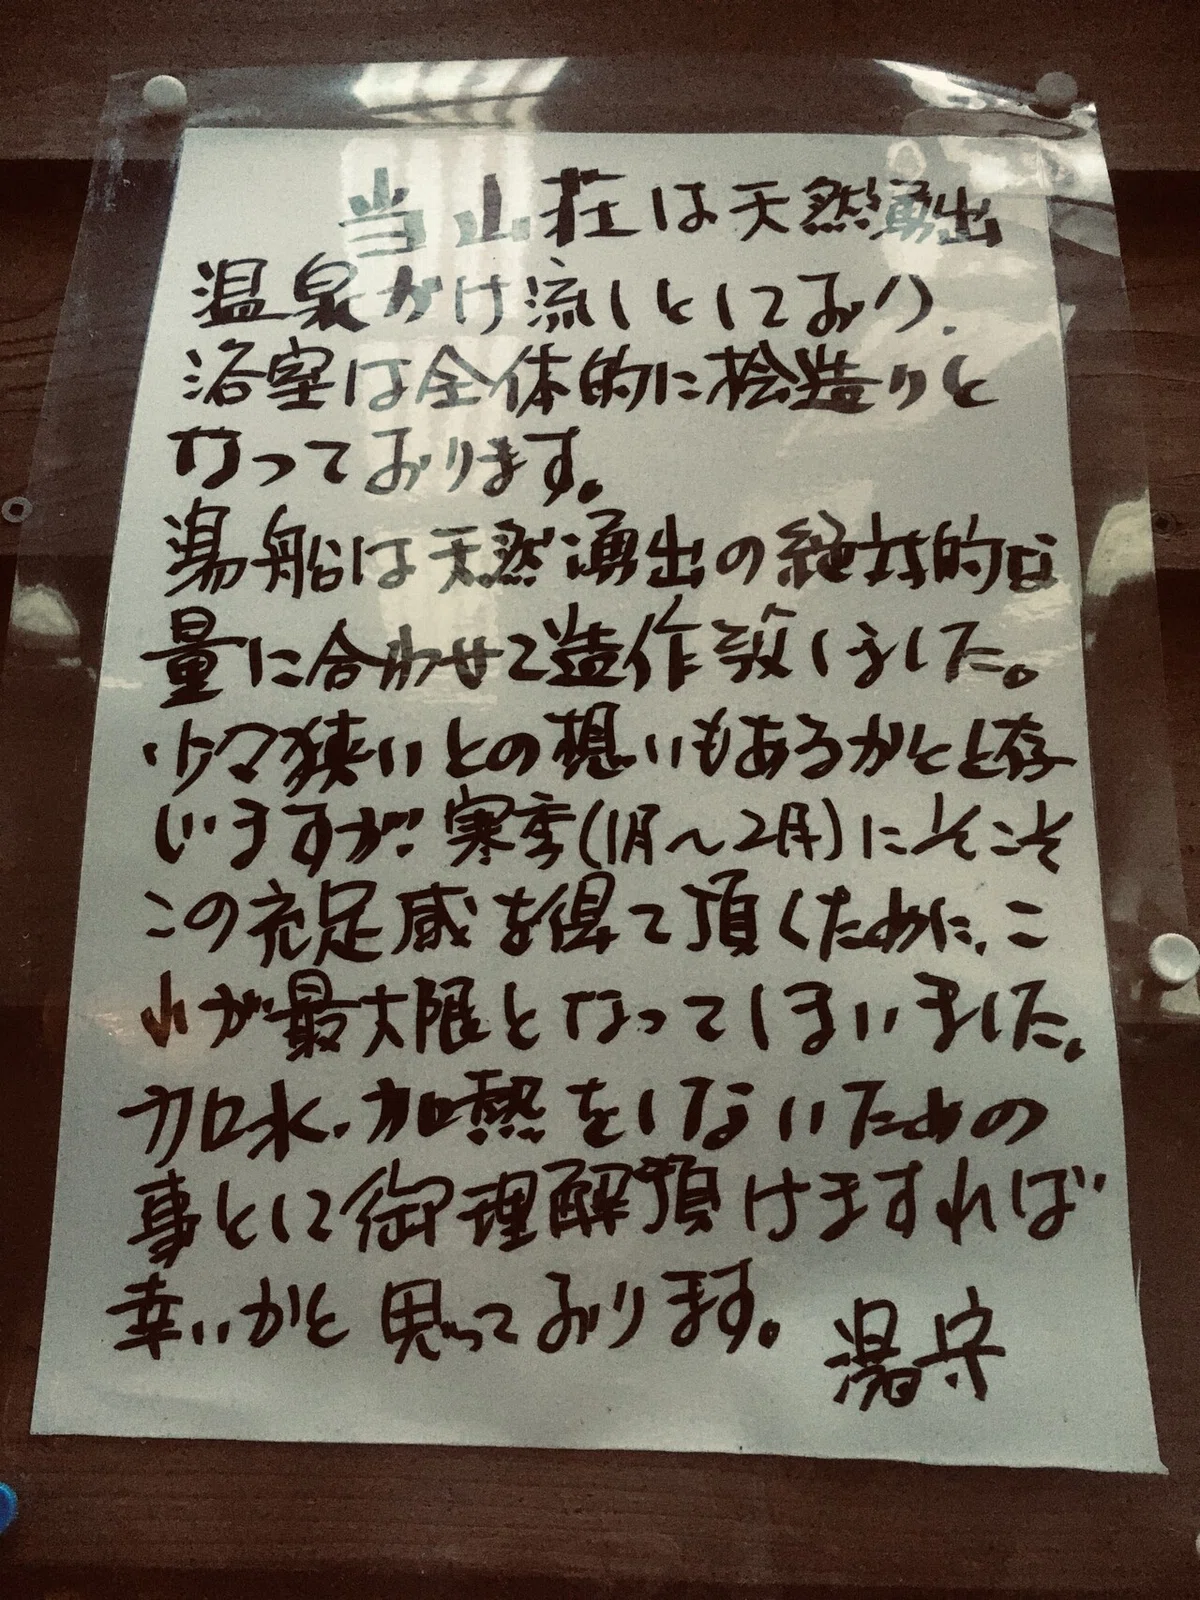 当山荘は天然湧出
温泉かけ流しとしており、
浴室は全体的に桧造りと
なっております。
湯船は天然湧出の絶対的な
量に合わせて造作致しました。
少々狭いとの想いもあるかと存
じますが、寒季(1月〜2月)にこそ
この充足感を得て頂くために、こ
れが最大限となってしまいました。
加水・加熱をしないための
事とに御理解頂けますれば
幸いかと思っております。
湯守